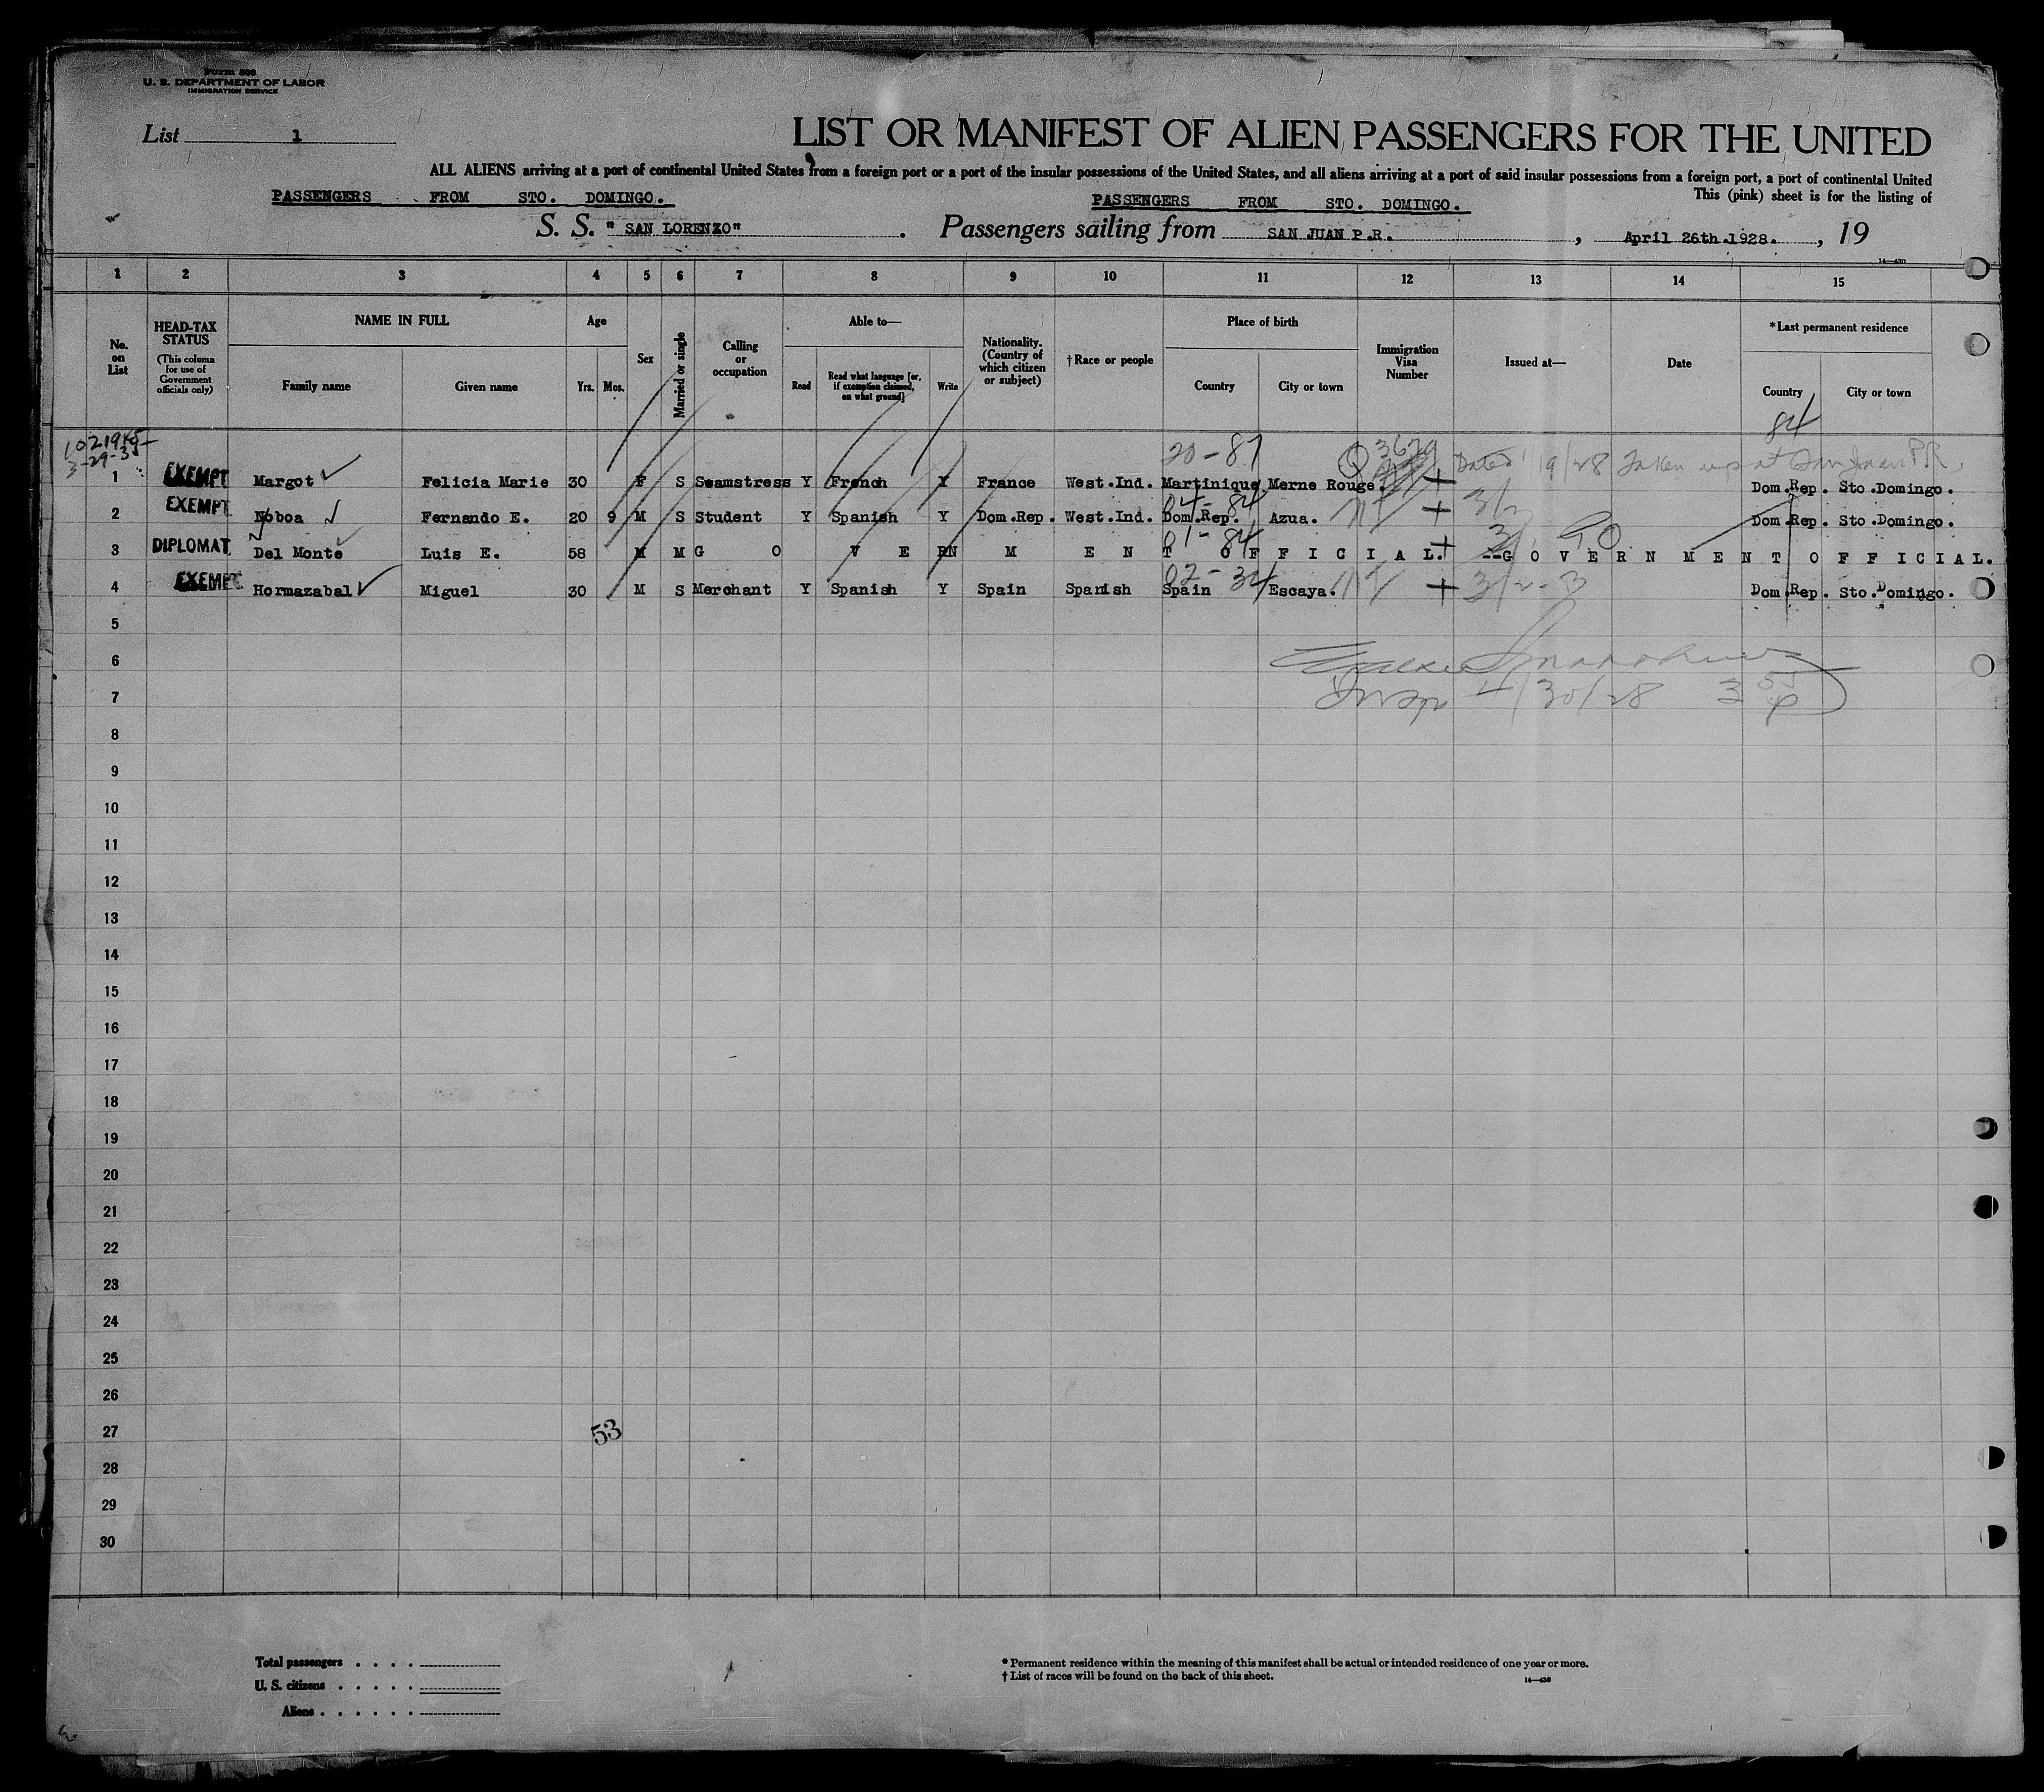 Form 500
U. S. DEPARTMENT OF LABOR
IMMIGRATION SERVICE
List 1
LIST OR MANIFEST OF ALIEN PASSENGERS FOR THE UNITED
ALL ALIENS arriving at a port of continental United States from a foreign port or a port of the insular possessions of the United States, and all aliens arriving at a port of said insular possessions from a foreign port, a port of continental United
This (pink) sheet is for the listing of
PASSENGERS FROM STO. DOMINGO. PASSENGERS FROM STO. DOMINGO.
S. S. " SAN LORENZO" . Passengers sailing from SAN JUAN P.R. , April 26th.1928. , 19
14—430
1 2 3 4 5 6 7 8 9 10 11 12 13 14 15
No. on List
HEAD-TAX STATUS
(This column for use of Government officials only)
NAME IN FULL
Family name Given name
Age
Yrs. Mos.
Sex
Married or single
Calling or occupation
Able to—
Read Read what language [or, if exemption claimed, on what ground] Write
Nationality. (Country of which citizen or subject)
†Race or people
Place of birth
Country City or town
Immigration Visa Number
Issued at—
Date
*Last permanent residence
Country City or town
84
3-29-35
20-87 3679 Dated 1/9/28 Taken up at San Juan P.R.
1 EXEMPT Margot Felicia Marie 30 F S Seamstress Y French Y France West.Ind. Martinique Merne Rouge. Dom.Rep. Sto.Domingo.
04-84
2 EXEMPT Noboa Fernando E. 20 9 M S Student Y Spanish Y Dom.Rep. West.Ind. Dom.Rep. Azua. 3/2 Dom.Rep. Sto.Domingo.
01-84
3 DIPLOMAT Del Monte Luis E. 58 M M G O V E RN M E N T O F F I C I A L. --G O V E R N M E N T O F F I C I A L.
02-34
4 EXEMPT Hormazabal Miguel 30 M S Merchant Y Spanish Y Spain Spanish Spain Escaya. 3/2-B Dom.Rep. Sto.Domingo.
5
6
7 Insp 4/30/28 3 55 p
8
9
10
11
12
13
14
15
16
17
18
19
20
21
22
23
24
25
26
27 53
28
29
30
Total passengers . . . .
U. S. citizens . . . . .
Aliens . . . . . .
* Permanent residence within the meaning of this manifest shall be actual or intended residence of one year or more.
† List of races will be found on the back of this sheet.
14—430